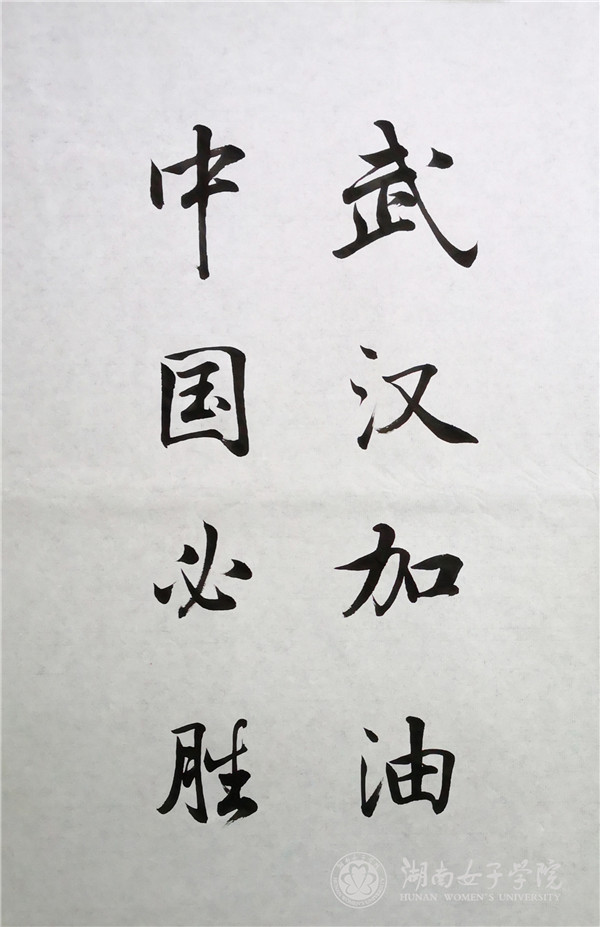 武汉加油
中国必胜
湖南女子学院
HUNAN WOMEN'S UNIVERSITY